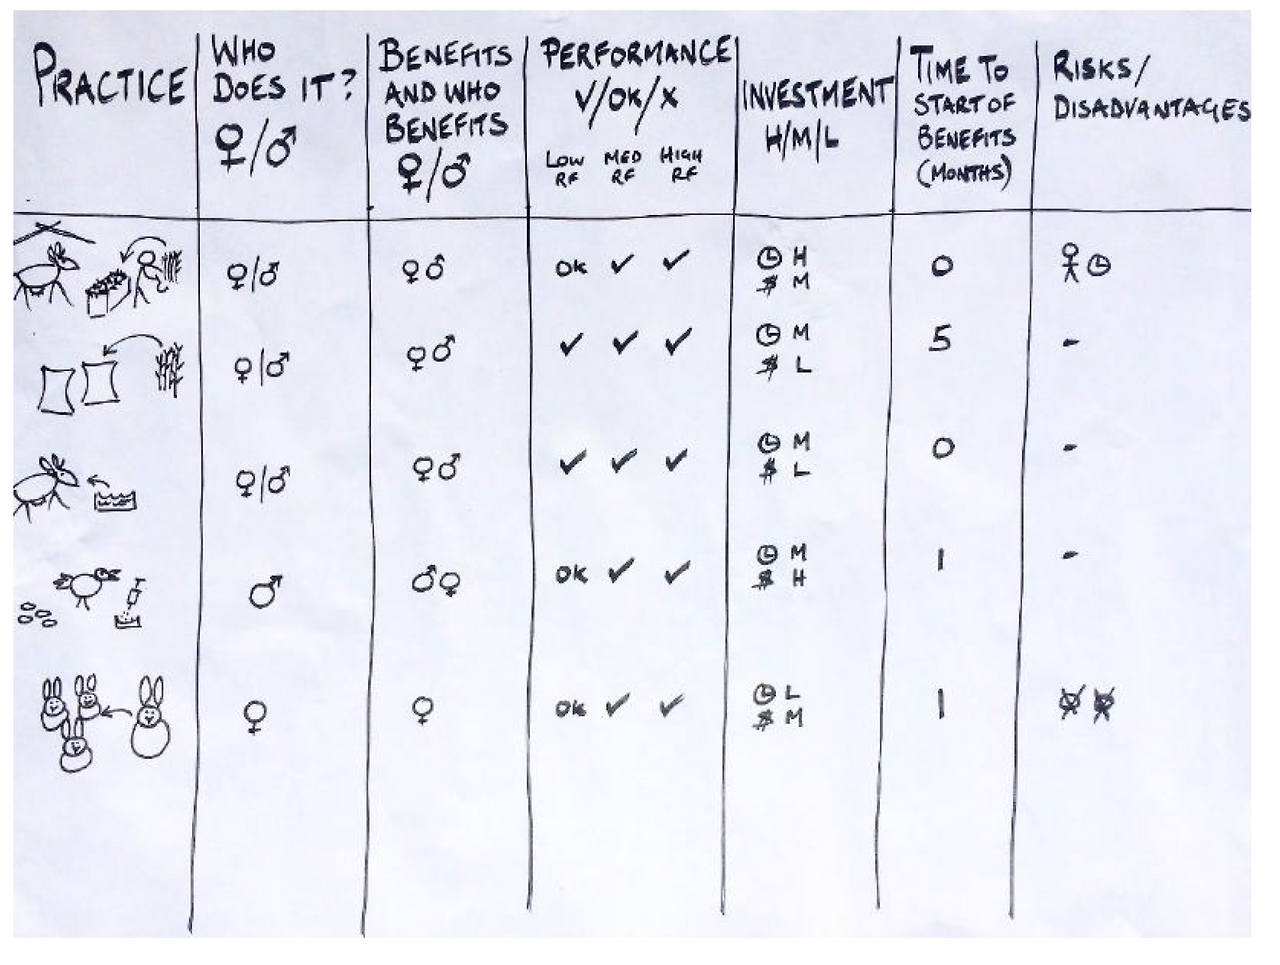 PRACTICE
WHO
DOES IT?
♀/♂
BENEFITS
AND WHO
BENEFITS
♀/♂
PERFORMANCE
✓/OK/X
LOW MED HIGH
RF RF RF
INVESTMENT
H/M/L
TIME TO
START OF
BENEFITS
(MONTHS)
RISKS/
DISADVANTAGES
♀/♂ ♀♂ OK ✓ ✓ H 0
$ M
♀/♂ ♀♂ ✓ ✓ ✓ M 5 -
$ L
♀/♂ ♀♂ ✓ ✓ ✓ M 0 -
$ L
♂ ♂♀ OK ✓ ✓ M 1 -
$ H
♀ ♀ OK ✓ ✓ L 1
$ M